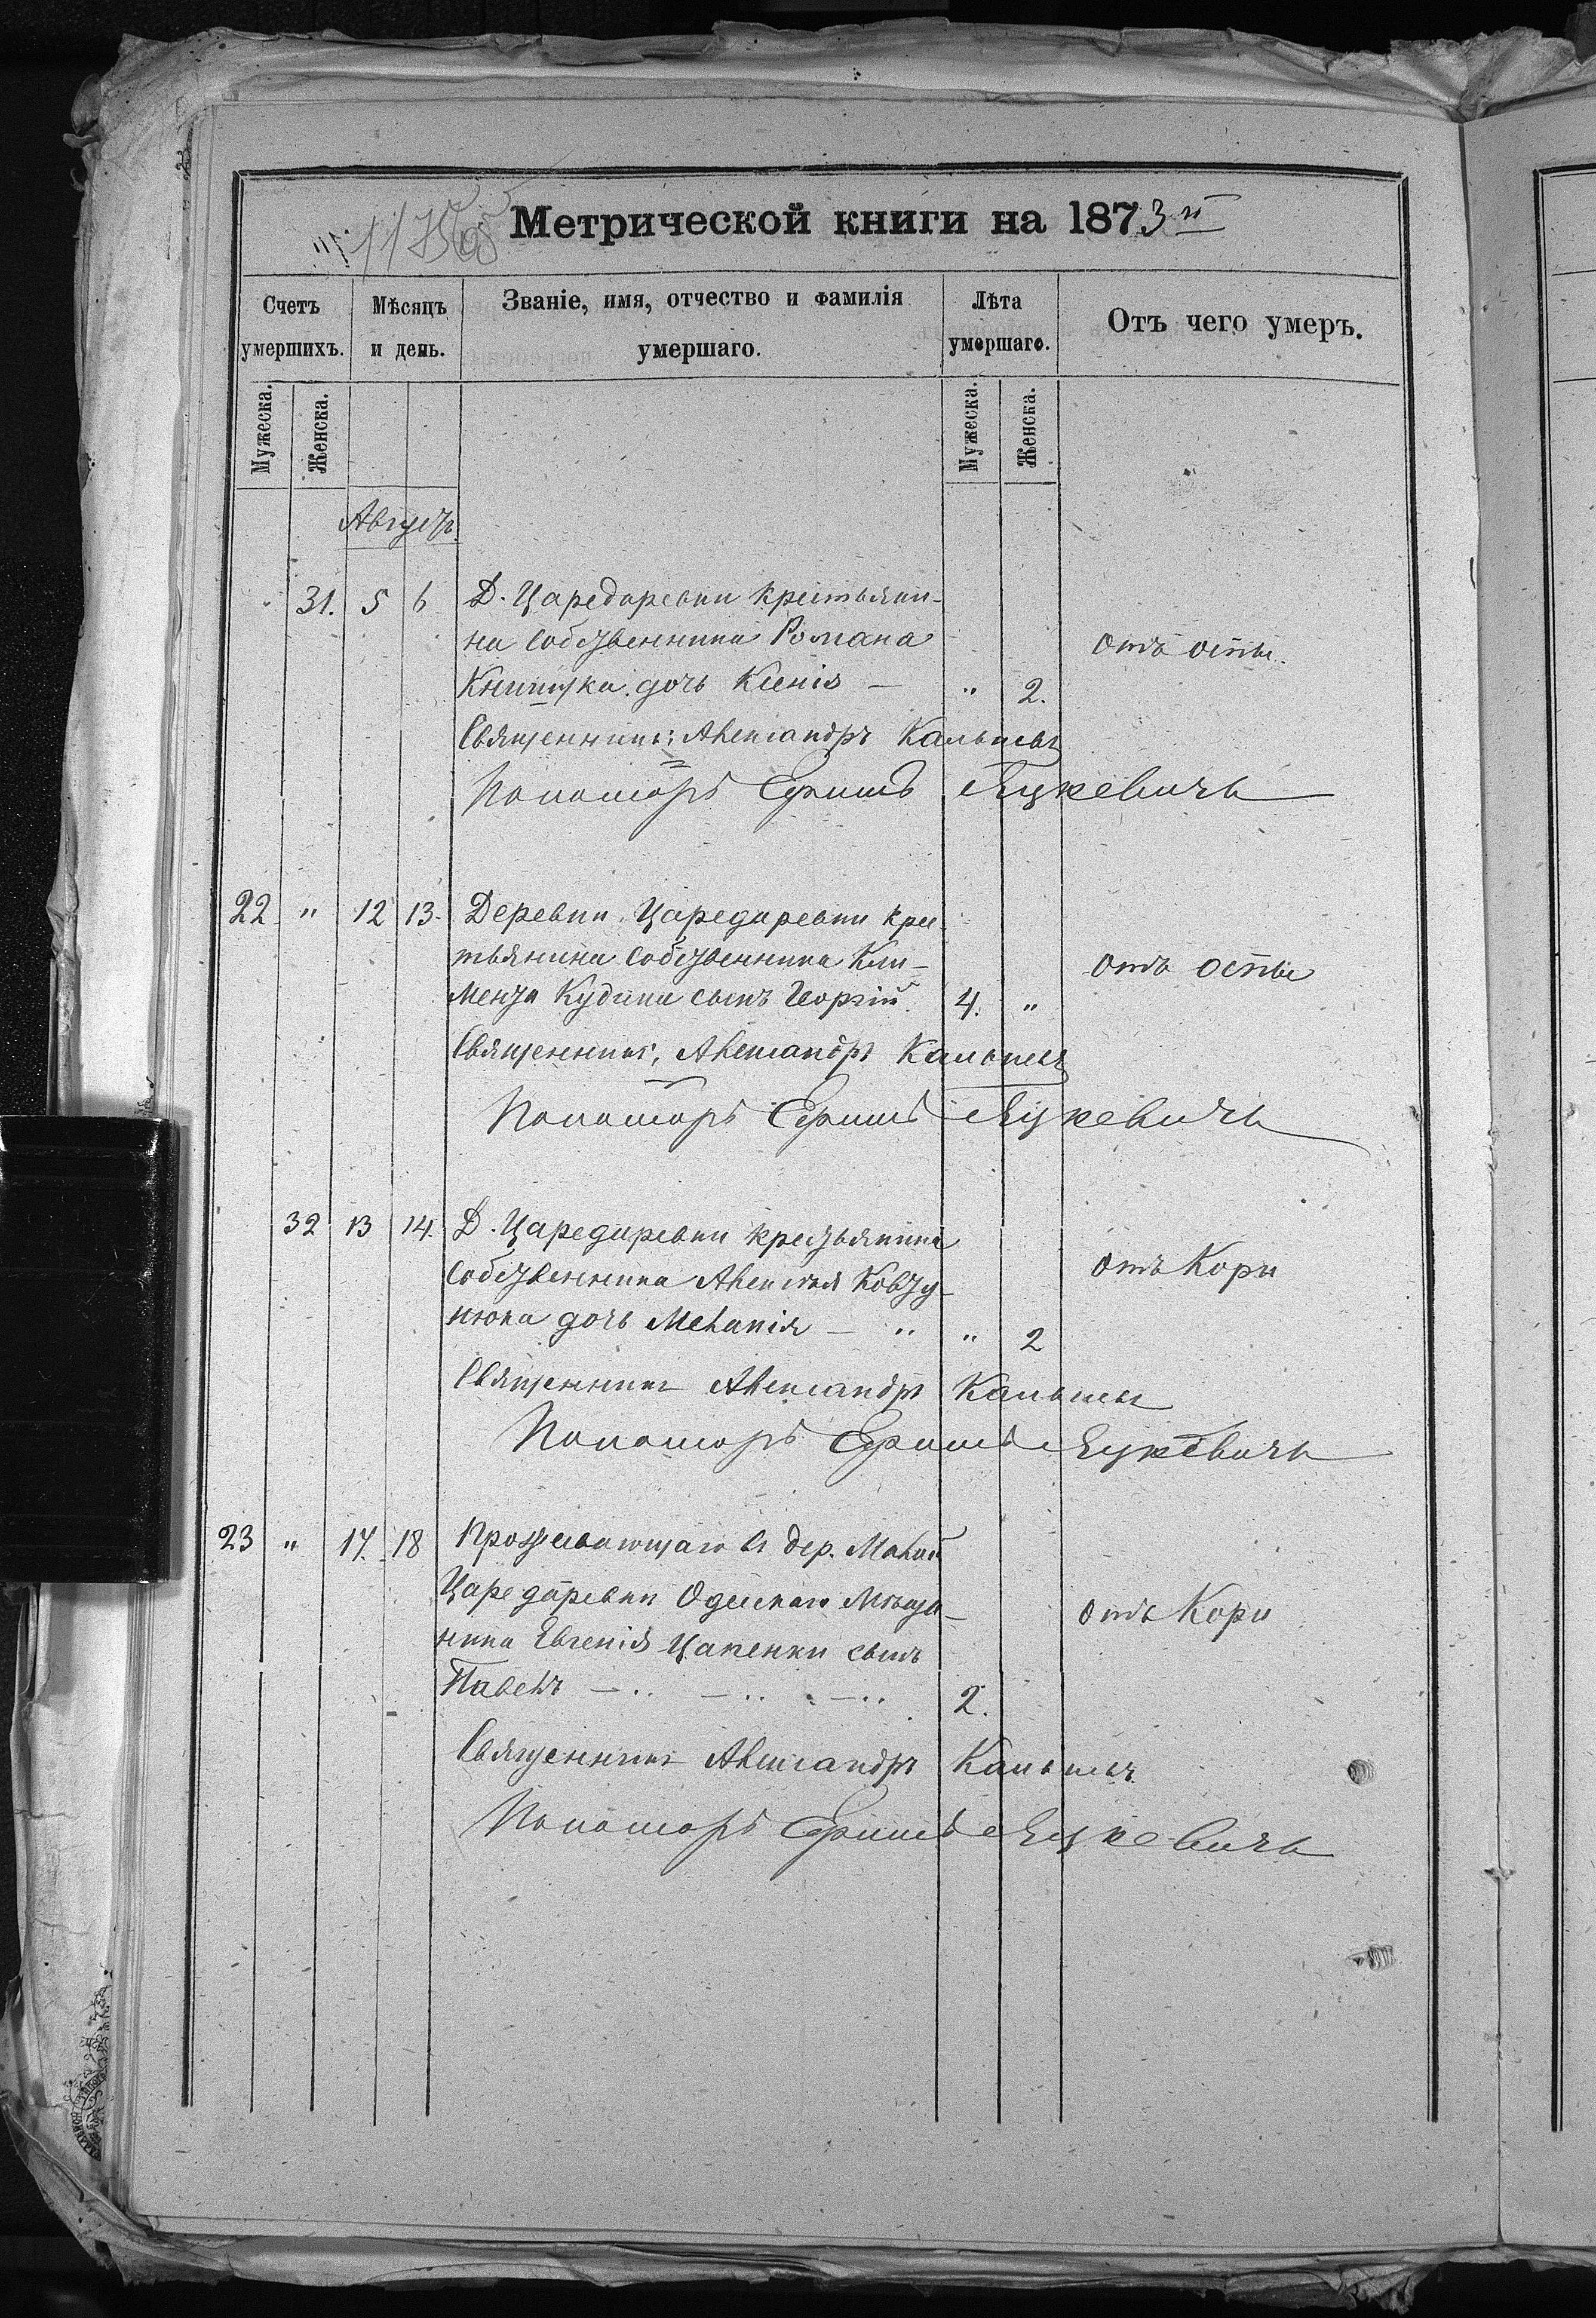 Метрической книги на 1873й
Счетъ умершихъ.
Мѣсяцъ и день.
Званіе, имя, отчество и фамилія умершаго.
Лѣта умершаго.
Отъ чего умеръ.
Мужеска. Женска. Мужеска. Женска.
Августъ.
31. 5 6 Д. Царедаревки крестьяни-
на собственника Романа отъ оспы.
дочь Ксенія — " 2.
Священникъ: Александръ
Пономарь Ефимъ Яцкевичъ
22 " 12 13. Деревни Царедаревки крес-
тьянина собственника Кли- отъ оспы
мента Кудина сынъ Георгій. 4. "
Священникъ, Александръ
Пономарь Ефимъ Яцкевичъ
32 13 14. Д. Царедаревки крестьянина
собственника Алексѣя Ковту- отъ Кори
нюка дочь Меланія — " " 2
Священникъ Александръ
Пономарь Ефимъ Яцкевичъ
23 " 17. 18 Проживающаго въ дер. Малой
Царедаревки Одескаго Мѣща- отъ Кори
нина Евгенія Цапенки сынъ
Павелъ — .. — .. — .. 2.
Священникъ Александръ
Пономарь Ефимъ Яцкевичъ